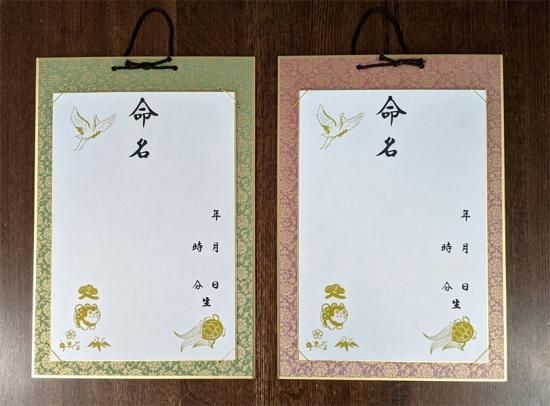 命名
年月日
時分生
命名
年月日
時分生